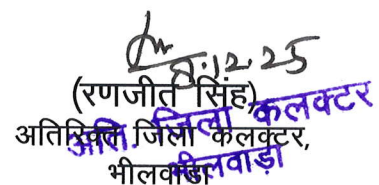 8.12.25
(रणजीत सिंह)
अतिरिक्त जिला कलक्टर,
भीलवाडा
अति. जिला कलक्टर
भीलवाड़ा